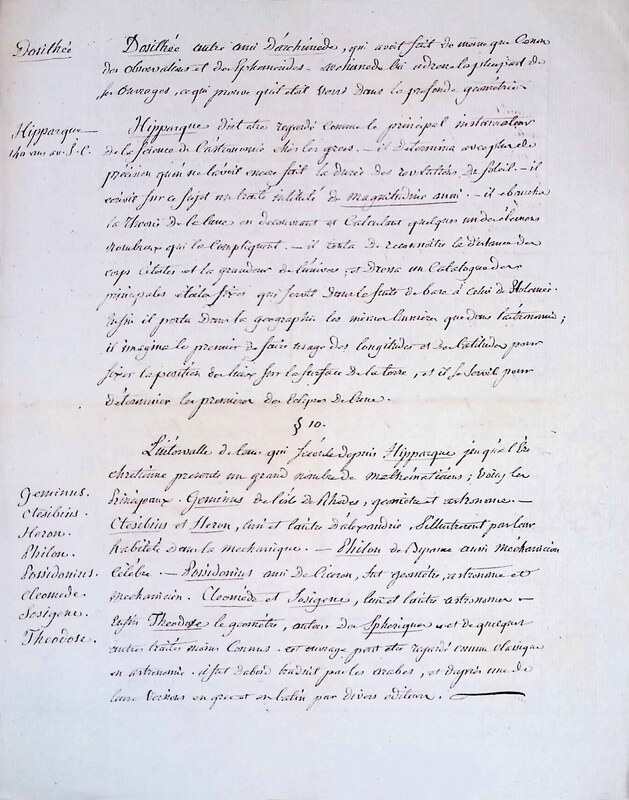 Dosithée
Dosithée autre ami d'archimede, qui avoit fait de meme que Conon
des observations et des Ephemerides. archimede lui adresse la plupart de
ses ouvrages, ce qui prouve qu'il etoit versé dans la profonde geométrie.
Hipparque
140 ans av. J. C.
Hipparque doit etre regardé comme le principal instaurateur
de la science de l'astronomie chés les grecs. — il determina avec plus de
precision qu'on ne l'avoit encore fait la durée des revolutions du soleil. — il
ecrivit sur ce sujet un traité intitulé de magnitudine anni. — il ebaucha
la theorie de la lune en decouvrant et calculant quelques uns des elemens
nombreux qui la compliquent. — il tenta de reconnoitre la distance des
corps celestes et la grandeur de l'univers, et dressa un Catalogue des
principales etoiles fixes qui servit dans la suite de base à celui de Ptolomée.
Enfin il porta dans la geographie les memes lumieres que dans l'astronomie;
il imagina le premier de faire usage des longitudes et des latitudes pour
fixer la position des lieux sur la surface de la terre, et il se servit pour
determiner les premieres des Eclipses de lune.
§ 10.
L'intervalle de tems qui s'écoula depuis Hipparque jusqu'à l'Ere
chretienne presente un grand nombre de mathématiciens; voici les
principaux. Geminus de l'isle de Rhodes, geometre et astronome. —
Ctesibius et Heron, l'un et l'autre d'alexandrie, s'illustrerent par leur
habileté dans la mechanique. — Philon de Bysance aussi mechanicien
célebre. — Possidonius ami de Ciceron, fut geometre, astronome et
mechanicien. Cleomède et Sosigene, l'un et l'autre astronomes. —
Enfin Theodose le geomètre, auteur des Spheriques et de quelques
autres traités moins connus. cet ouvrage peut etre regardé comme classique
en astronomie. il fut d'abord traduit par les arabes, et d'après une de
leurs versions en grec et en latin par divers editeurs.
Geminus.
Ctesibius.
Heron.
Philon.
Possidonius.
Cleomede.
Sosigene.
Theodose.